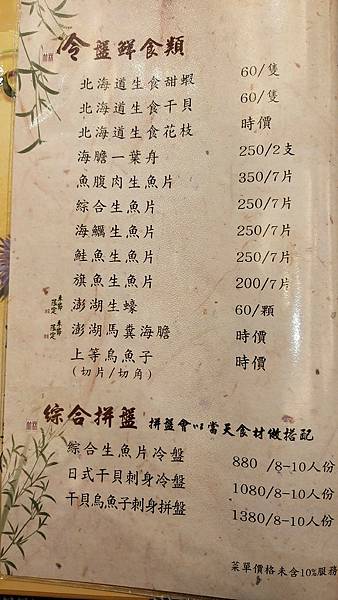 冷盤鮮食類
北海道生食甜蝦 60/隻
北海道生食干貝 60/隻
北海道生食花枝 時價
海膽一葉舟 250/2支
魚腹肉生魚片 350/7片
綜合生魚片 250/7片
海鱺生魚片 250/7片
鮭魚生魚片 250/7片
旗魚生魚片 200/7片
季節限定 澎湖生蠔 60/顆
季節限定 澎湖馬糞海膽 時價
上等烏魚子 時價
(切片/切角)
綜合拼盤 拼盤會以當天食材做搭配
綜合生魚片冷盤 880 /8-10人份
日式干貝刺身冷盤 1080/8-10人份
干貝烏魚子刺身拼盤 1380/8-10人份
菜單價格未含10%服務